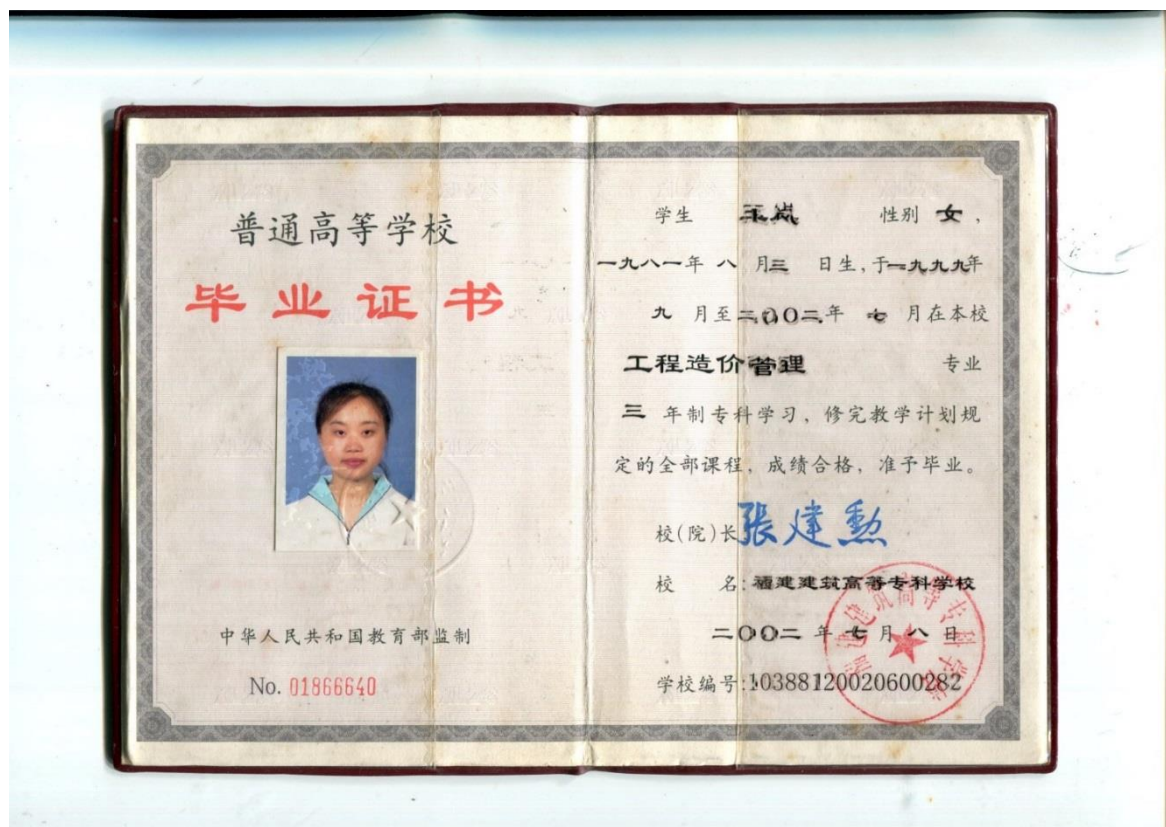 普通高等学校
毕业证书
中华人民共和国教育部监制
No. 01866640
学生 王岚 性别 女,
一九八一年 八 月三 日生,于一九九九年
九 月至二〇〇二年 七 月在本校
工程造价管理 专业
三 年制专科学习,修完教学计划规
定的全部课程,成绩合格,准予毕业。
校(院)长 张建勳
校 名:福建建筑高等专科学校
二〇〇二 年 七 月 八 日
学校编号:10388120020600282
福建建筑高等专科学校